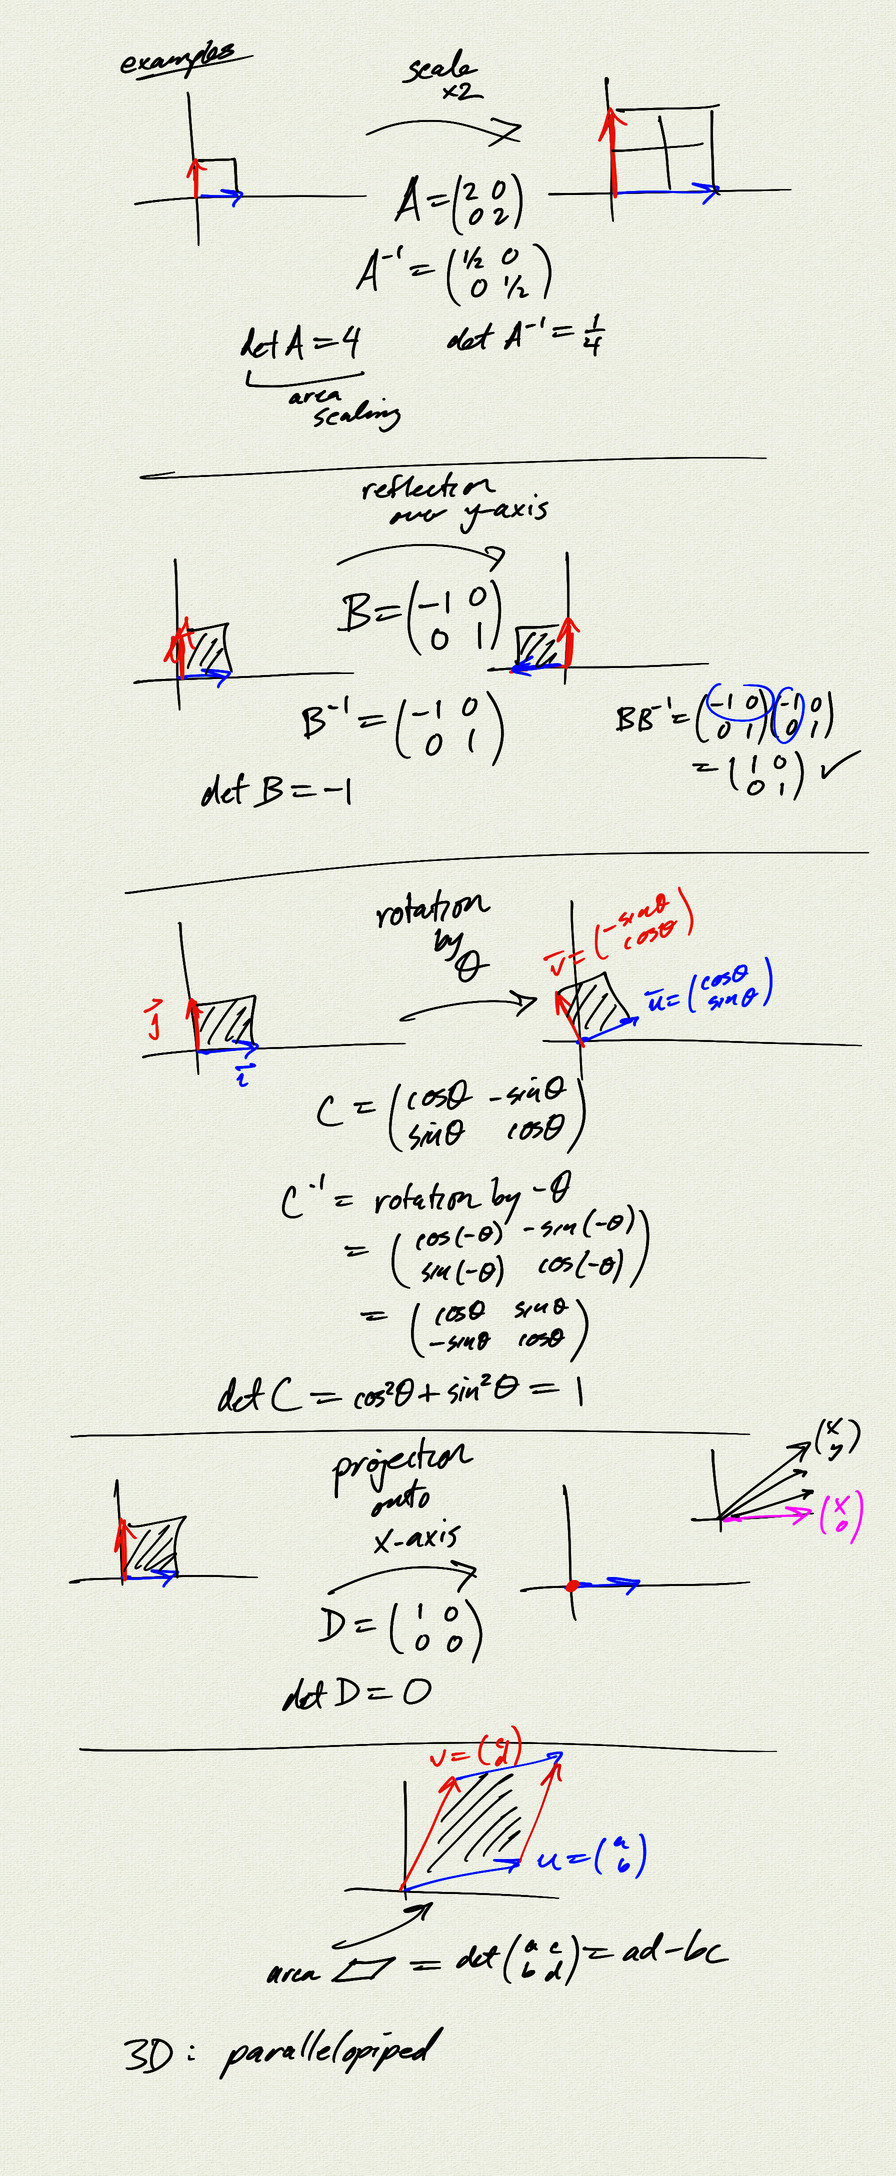 examples
scale
x2
A = (2 0
0 2)
A⁻¹ = (1/2 0
0 1/2)
det A = 4 det A⁻¹ = 1/4
area
scaling
reflection
over y-axis
B = (-1 0
0 1)
B⁻¹ = (-1 0
0 1)
BB⁻¹ = (-1 0
0 1)(-1 0
0 1)
= (1 0
0 1) ✓
det B = -1
rotation
by
θ
j
i
v = (-sinθ
cosθ)
u = (cosθ
sinθ)
C = (cosθ -sinθ
sinθ cosθ)
C⁻¹ = rotation by -θ
= (cos(-θ) -sin(-θ)
sin(-θ) cos(-θ))
= (cosθ sinθ
-sinθ cosθ)
det C = cos²θ + sin²θ = 1
projection
onto
x-axis
(x
y)
(x
0)
D = (1 0
0 0)
det D = 0
v = (c
d)
u = (a
b)
area ▱ = det (a c
b d) = ad - bc
3D: parallelopiped